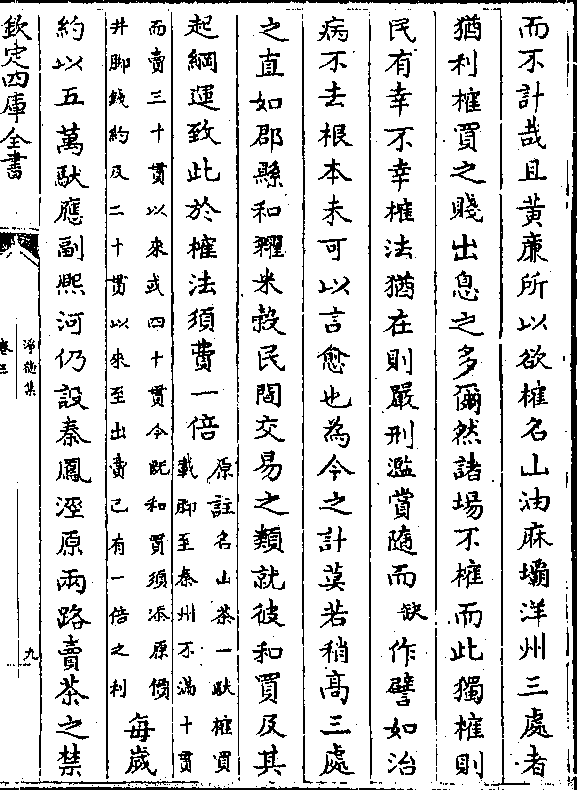 而不計哉且黃廉所以欲榷名山油麻壩洋州三處者
猶利榷買之賤出息之多爾然諸場不榷而此獨榷則
民有幸不幸榷法猶在則嚴刑濫賞隨而缺作譬如治
病不去根本未可以言愈也為今之計莫若稍髙三處
之直如郡縣和糴米榖民間交易之類就彼和買及其
起綱運致此於榷法須費一倍
原註名山茶一馱榷買
載脚至秦州不滿十貫
而賣三十貫以來或四十貫今既和買須添原價
井脚錢約及二十貫以來至出賣已有一倍之利
每歲
約以五萬馱應副熙河仍設秦鳳涇原兩路賣茶之禁
欽定四庫全書
淨德集
卷三
九